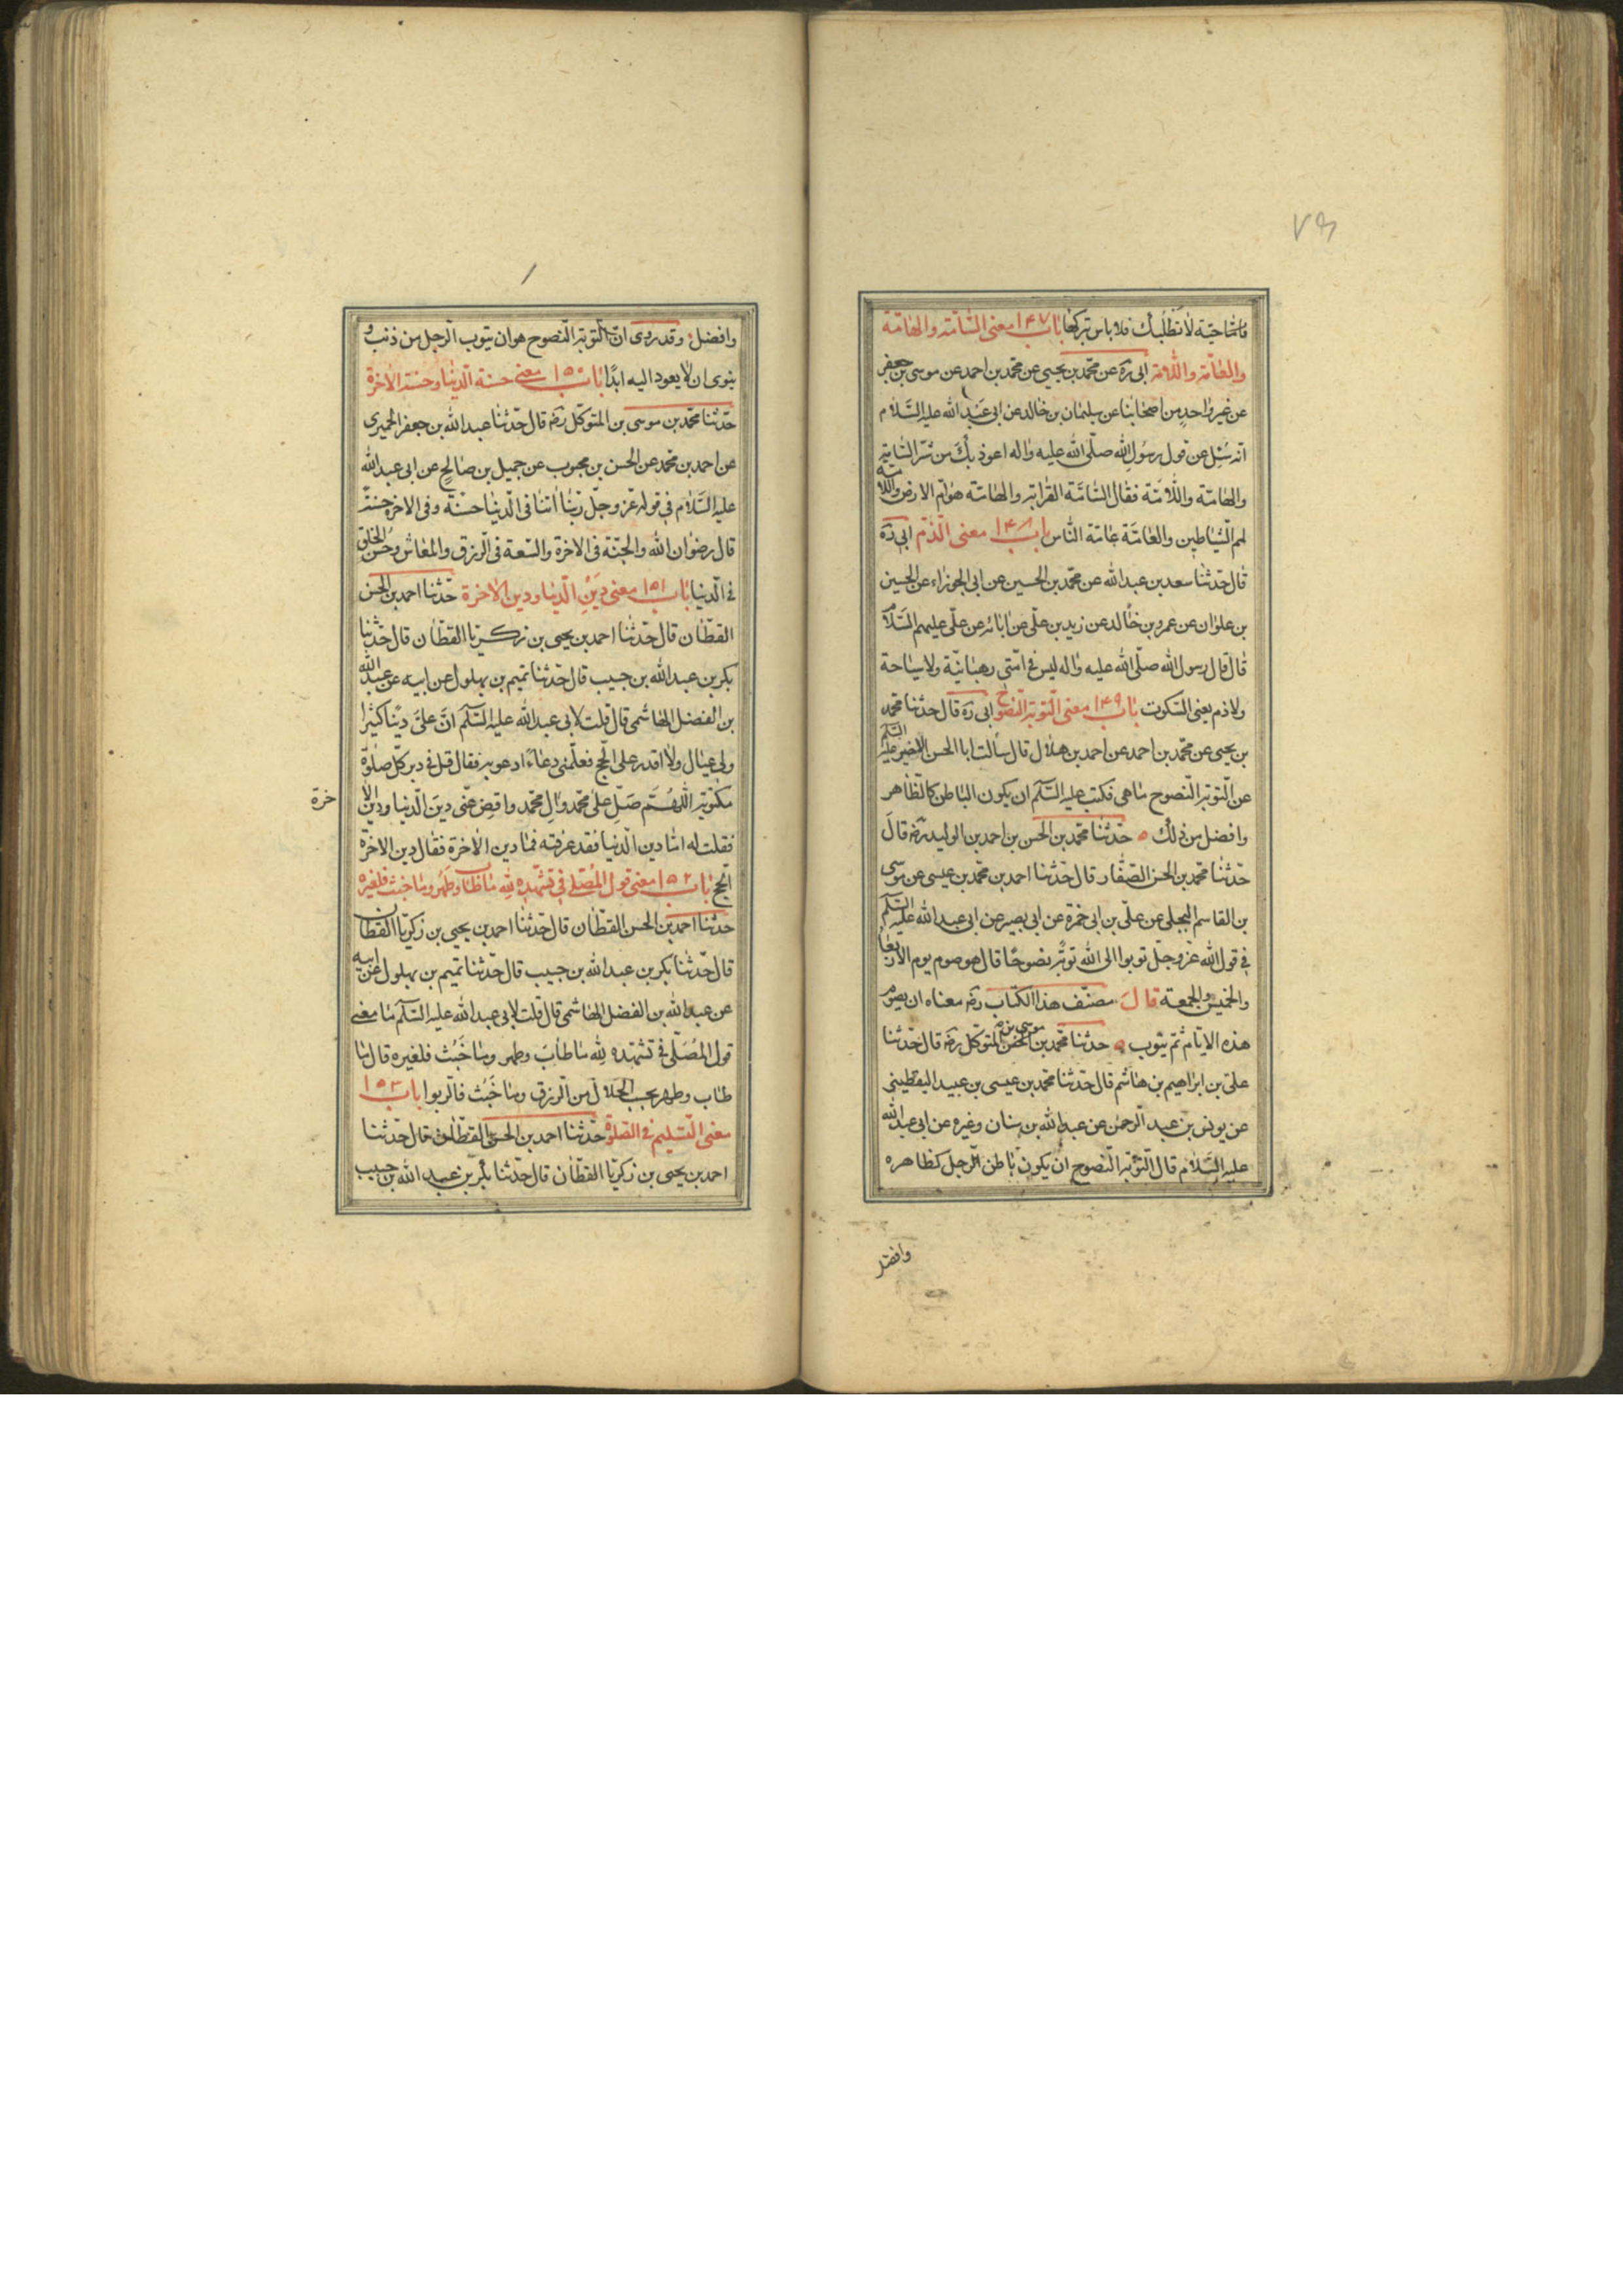 ۷۳
فامّا حيّة لا تطلبك فلا باس بتركها باب ۱۴۷ معنى السّامّة والهامّة
والعامّة واللّامّة ابى ره عن محمّد بن يحيى عن محمّد بن احمد عن موسى بن جعفر
عن غير واحد من اصحابنا عن سليمان بن خالد عن ابى عبد الله عليه السّلام
انّه سُئِل عن قول رسول الله صلّى الله عليه واله اعوذ بك من شرّ السّامّة
والهامّة واللّامّة فقال السّامّة القرابة والهامّة هوامّ الارض واللّامّة
لمم الشّياطين والعامّة عامّة النّاس باب ۱۴۸ معنى الذّم ابى ره
قال حدّثنا سعد بن عبد الله عن محمّد بن الحسين عن ابى الجوزاء عن الحسين
بن علوان عن عمرو بن خالد عن زيد بن علىّ عن ابائه عن علىّ عليهم السّلام
قال قال رسول الله صلّى الله عليه واله ليس فى امّتى رهبانيّة ولا سياحة
ولا ذم يعنى السّكوت باب ۱۴۹ معنى التّوبة النّصوح ابى ره قال حدثنا محمّد
بن يحيى عن محمّد بن احمد عن احمد بن هلال قال سألت ابا الحسن الاخير عليه السّلم
عن التّوبة النّصوح ما هى فكتب عليه السّلم ان يكون الباطن كالظّاهر
وافضل من ذلك ه حدّثنا محمّد بن الحسن بن احمد بن الوليد رضه قال
حدّثنا محمّد بن الحسن الصّفّار قال حدّثنا احمد بن محمّد بن عيسى عن موسى
بن القاسم البجلى عن علىّ بن ابى حمزة عن ابى بصير عن ابى عبد الله عليه السّلم
فى قول الله عزّ وجلّ توبوا الى الله توبةً نصوحًا قال هو صوم يوم الاربعا
والخميس والجمعة قال مصنّف هذا الكتاب رضه معناه ان يصوم
هذه الايّام ثمّ يتوب ه حدثنا محمّد بن موسى بن المتوكّل رضه قال حدّثنا
علىّ بن ابراهيم بن هاشم قال حدّثنا محمّد بن عيسى بن عبيد اليقطينى
عن يونس بن عبد الرّحمن عن عبد الله بن سنان وغيره عن ابى عبد الله
عليه السّلام قال التّوبة النّصوح ان يكون باطن الرّجل كظاهره
وافضل
وافضل وقد روى انّ التّوبة النّصوح هو ان يتوب الرّجل من ذنب و
ينوى ان لا يعود اليه ابدًا باب ۱۵۰ معنى حسنة الدّنيا وحسنة الاخرة
حدّثنا محمّد بن موسى بن المتوكّل رضه قال حدّثنا عبد الله بن جعفر الحميرى
عن احمد بن محمّد عن الحسن بن محبوب عن جميل بن صالح عن ابى عبد الله
عليه السّلام فى قوله عزّ وجلّ ربّنا اتنا فى الدّنيا حسنة وفى الاخرة حسنة
قال رضوان الله والجنّة فى الاخرة والسّعة فى الرّزق والمعاش وحُسن الخلق
فى الدّنيا باب ۱۵۱ معنى دَيْنِ الدّنيا ودين الاخرة حدّثنا احمد بن الحسن
القطّان قال حدّثنا احمد بن يحيى بن زكريّا القطّان قال حدّثنا
بكر بن عبد الله بن حبيب قال حدّثنا تميم بن بهلول عن ابيه عن عبد الله
بن الفضل الهاشمى قال قلت لابى عبد الله عليه السّلم انّ علىّ دينًا كثيرا
ولى عيال ولا اقدر على الحجّ فعلّمنى دعاءً ادعو به فقال قل فى دبر كلّ صلوة
مكتوبة اللّهُمَّ صَلِّ على محمّد وال محمّد واقض عنّى دين الدّنيا ودين الا
خرة
فقلت له امّا دين الدّنيا فقد عرفته فما دين الاخرة فقال دين الاخرة
الحجّ باب ۱۵۲ معنى قول المُصلّى فى تشهّده لله ما طاب وطهر وما خبث فلغيره
حدّثنا احمد بن الحسن القطّان قال حدّثنا احمد بن يحيى بن زكريّا القطّان
قال حدّثنا بكر بن عبد الله بن حبيب قال حدّثنا تميم بن بهلول عن ابيه
عن عبد الله بن الفضل الهاشمى قال قلت لابى عبد الله عليه السّلم ما معنى
قول المُصَلّى فى تشهّده لله ما طابَ وطهر وما خَبُث فلغيره قال ما
طاب وطهر كسب الحلال من الرّزق وما خَبُث فالرّبوا باب ۱۵۳
معنى التّسليم فى الصّلوة حدّثنا احمد بن الحسن القطّان قال حدّثنا
احمد بن يحيى بن زكريّا القطّان قال حدّثنا بكر بن عبد الله بن حبيب